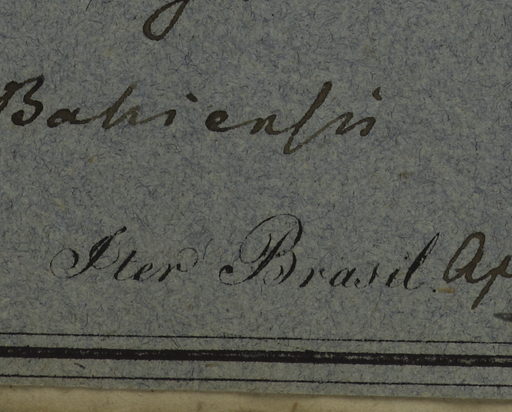 Bahiensis
Iter Brasil. Ap